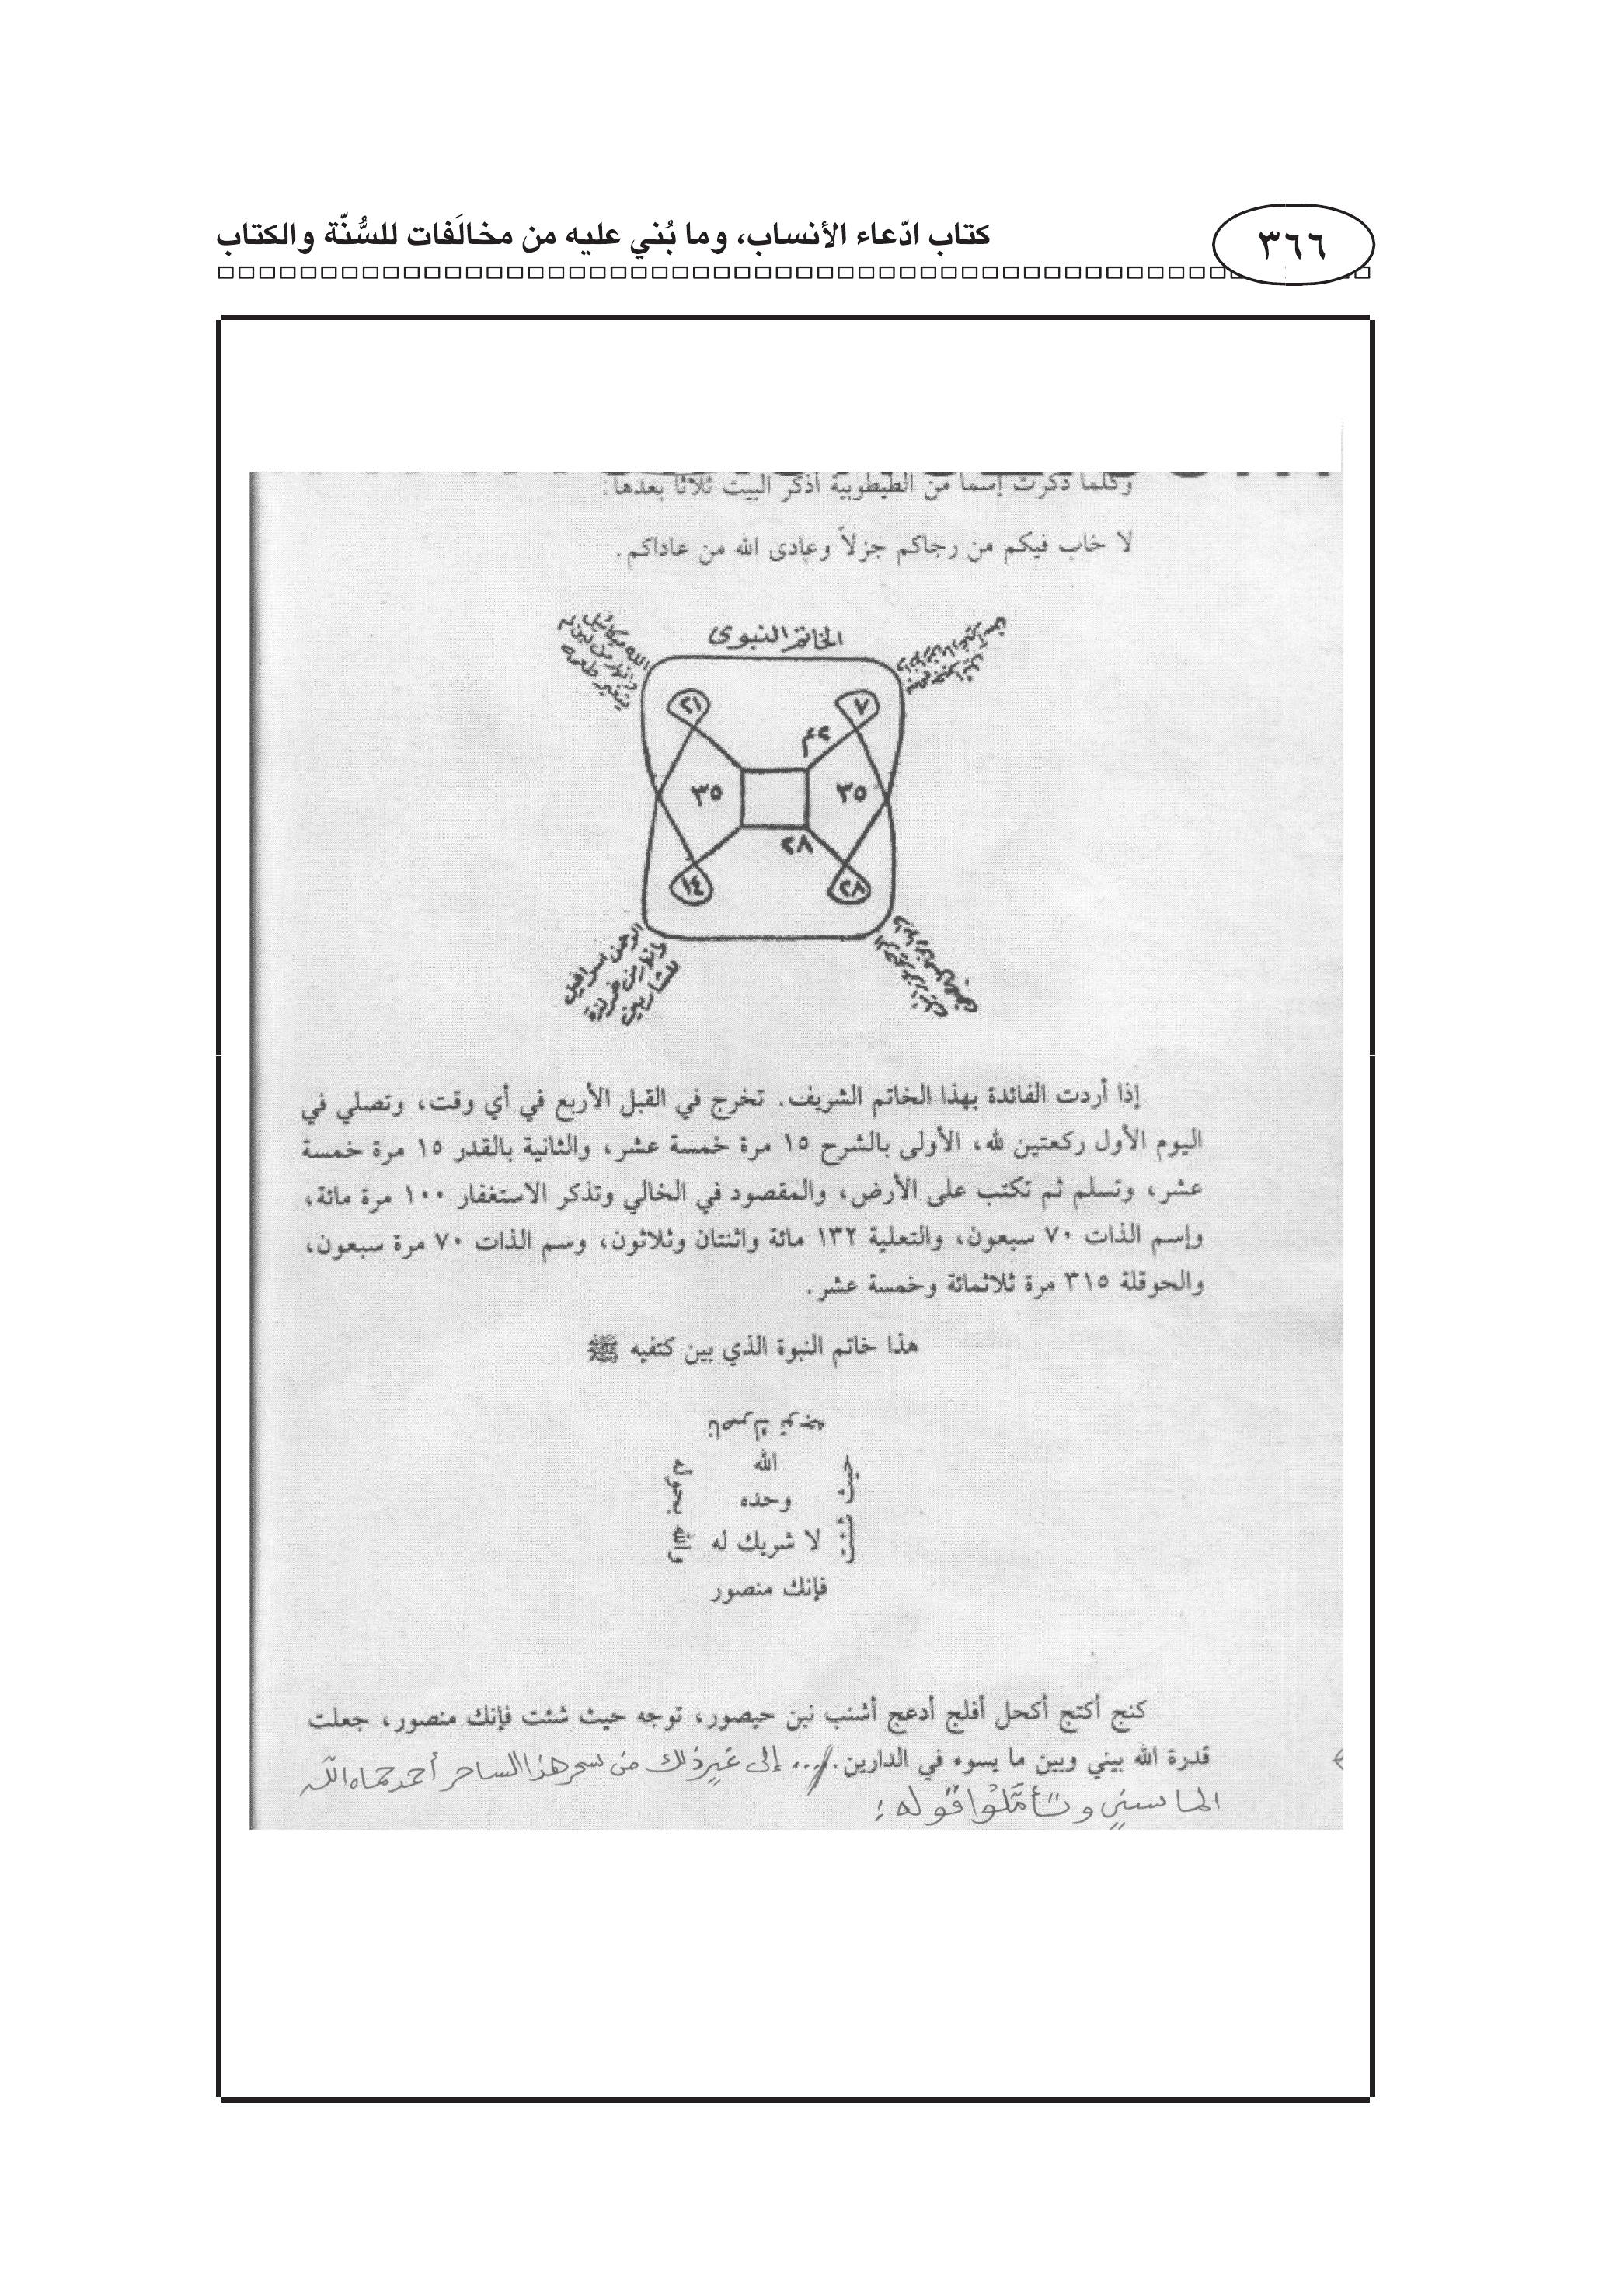 ٣٦٦
كتاب ادّعاء الأنساب، وما بُني عليه من مخالَفات للسُّنّة والكتاب
وكلما ذكرت إسما من الطيطوبية اذكر البيت ثلاثا بعدها:
لا خاب فيكم من رجاكم جزلاً وعادى الله من عاداكم.
الخاتم النبوي
الله ميكائيل
وانهار من لبن لم
يتغير طعمه
٢١
٧
٣٥
٣٥
٢٨
١٤
٢٨
الرحمن اسرافيل
وانهار من خمر لذة
للشاربين
إذا أردت الفائدة بهذا الخاتم الشريف. تخرج في القبل الأربع في أي وقت، وتصلي في
اليوم الأول ركعتين لله، الأولى بالشرح ١٥ مرة خمسة عشر، والثانية بالقدر ١٥ مرة خمسة
عشر، وتسلم ثم تكتب على الأرض، والمقصود في الخالي وتذكر الاستغفار ١٠٠ مرة مائة،
وإسم الذات ٧٠ سبعون، والتعلية ١٣٢ مائة واثنتان وثلاثون، وسم الذات ٧٠ مرة سبعون،
والحوقلة ٣١٥ مرة ثلاثمائة وخمسة عشر.
هذا خاتم النبوة الذي بين كتفيه ﷺ
ناصرك توجه
الله
وحده
لا شريك له
فإنك منصور
حيث شئت
والله بحوله
كنج أكتج أكحل أفلج أدعج أشنب نبن حيصور، توجه حيث شئت فإنك منصور، جعلت
قدرة الله بيني وبين ما يسوء في الدارين..... إلى غير ذلك من سحر هذا الساحر أحمد حماه الله
الحاسيني وتأمّلوا قوله: